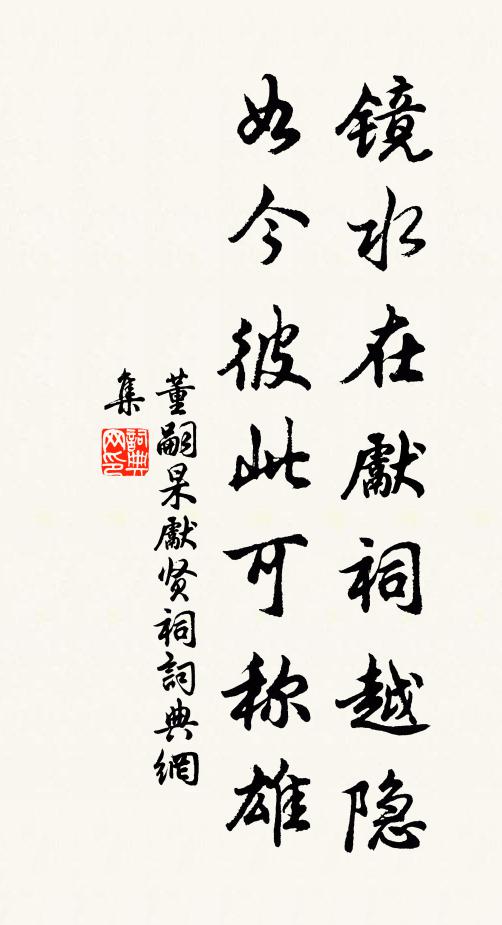 鏡水在獻祠越隐
如今彼此可称雄
董嗣杲獻贤祠詞典網
集
詞典网印